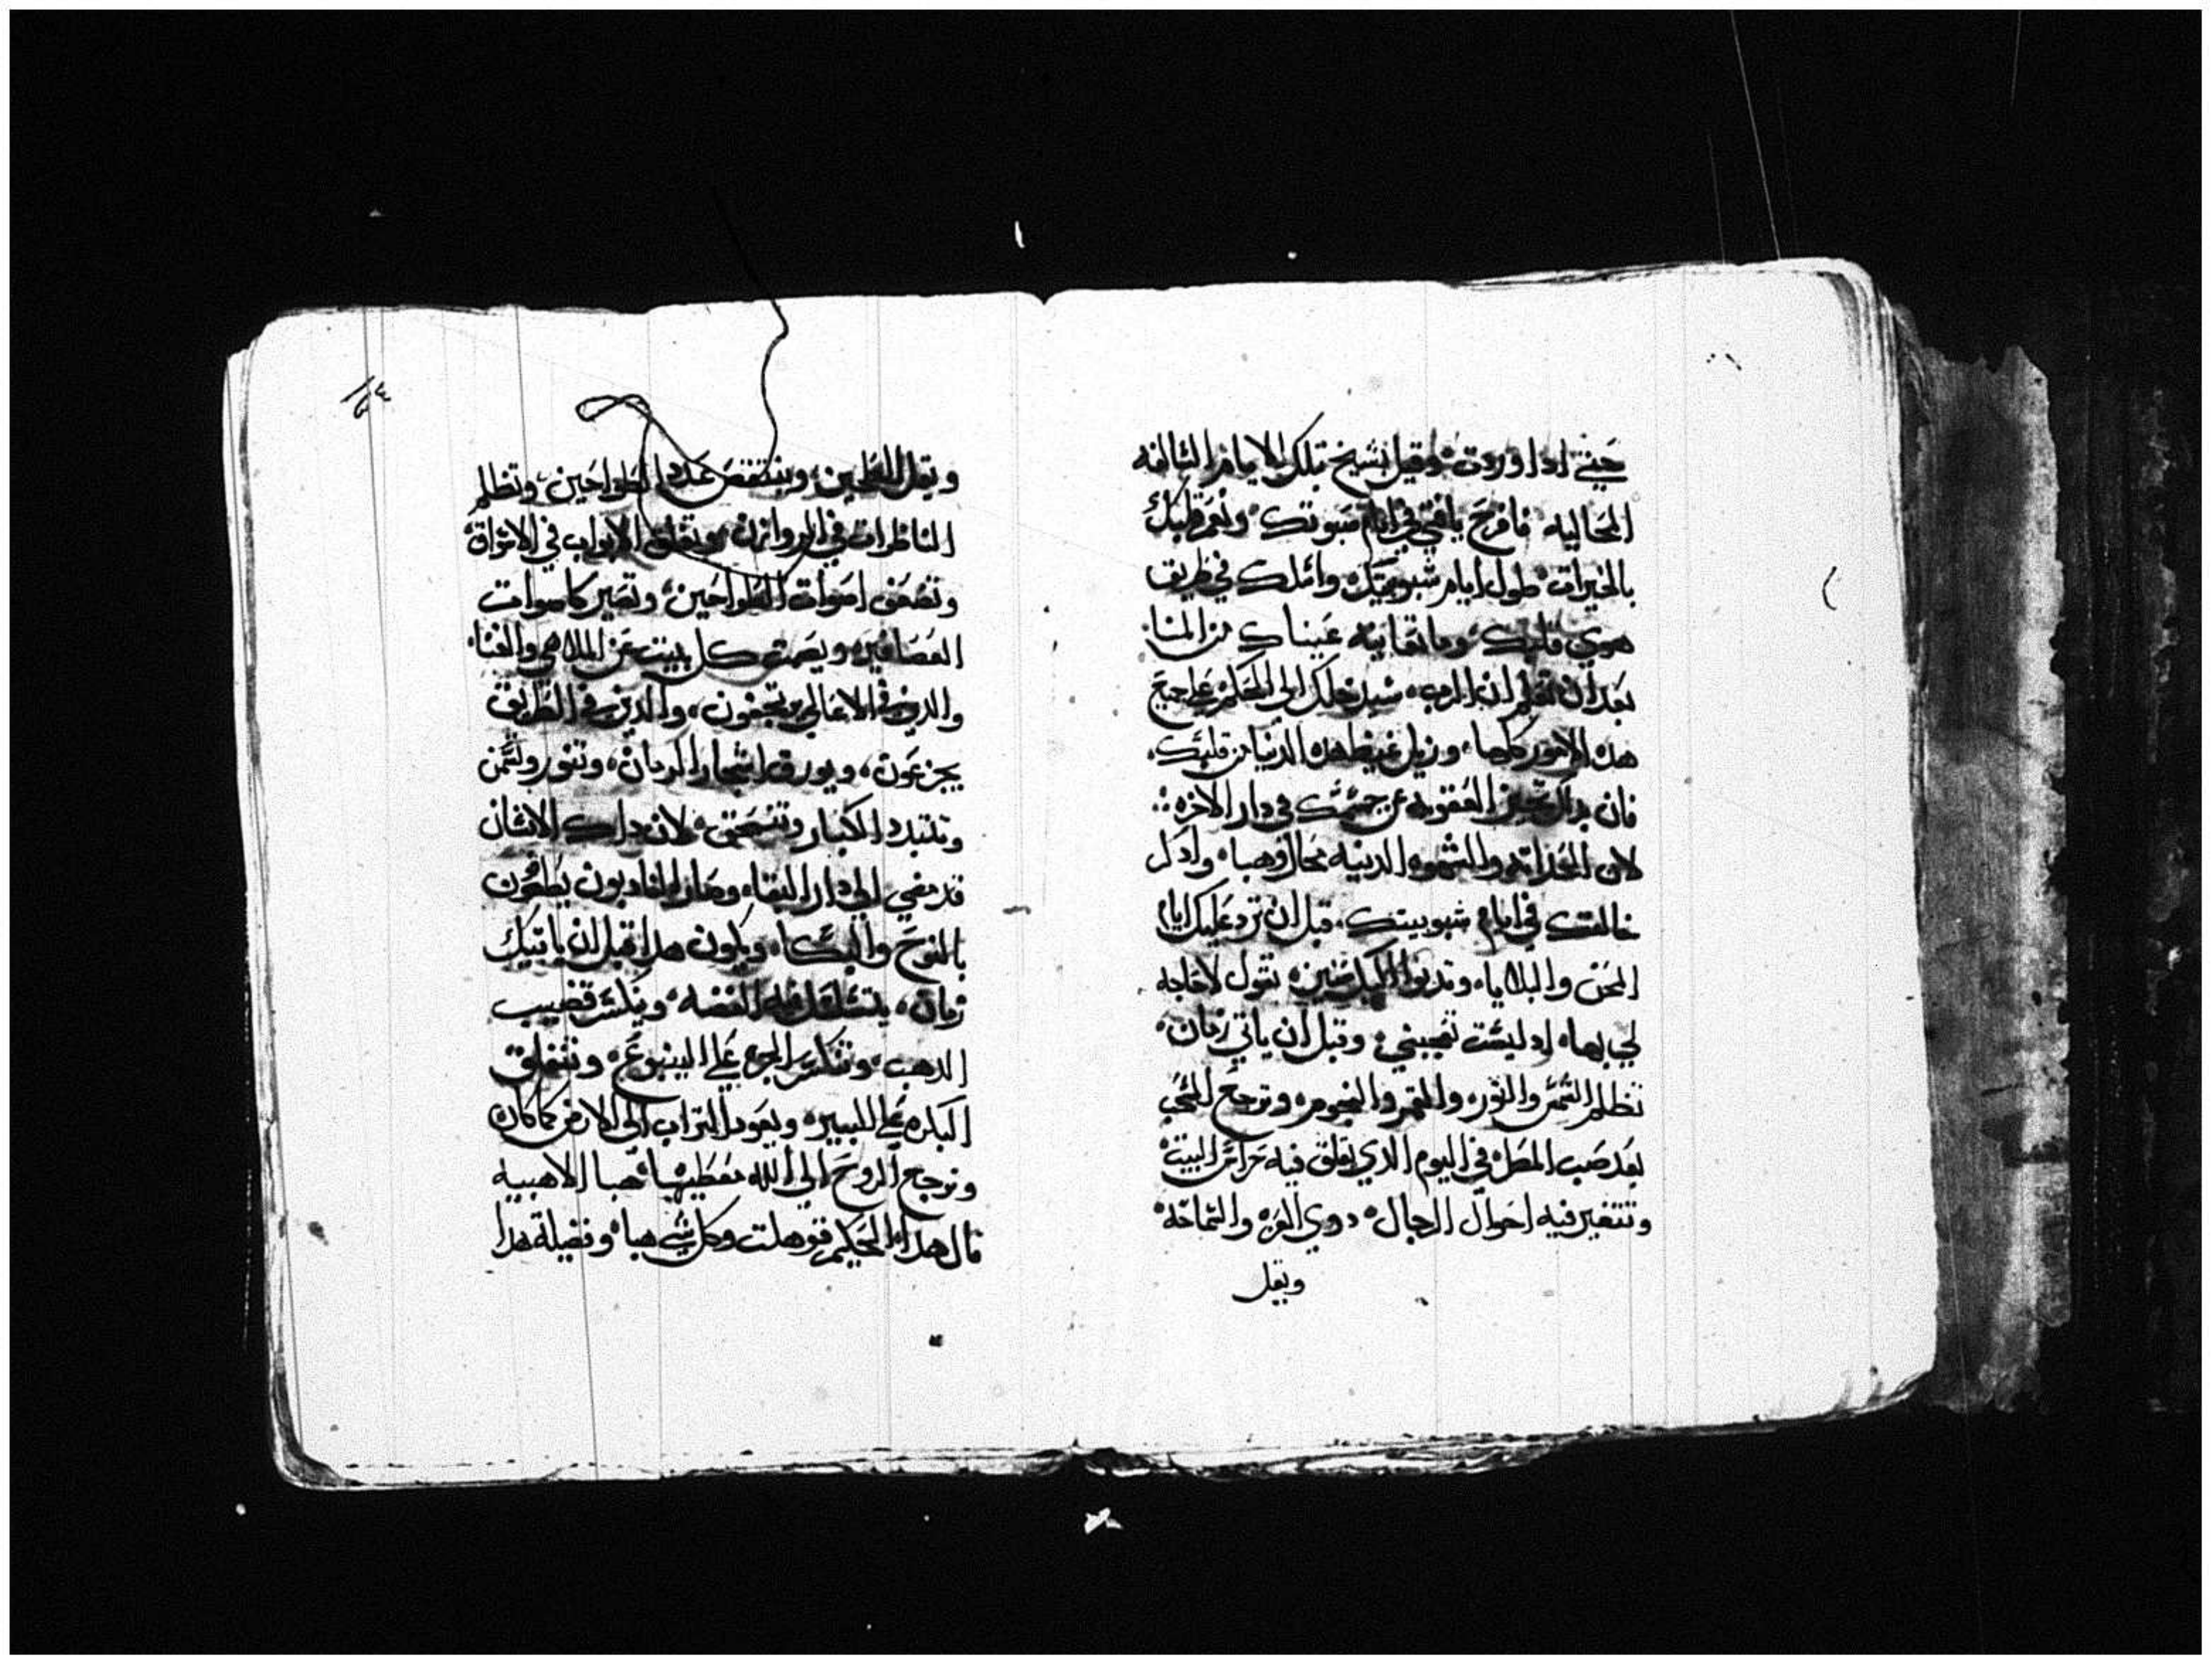 حتي ادا وردت وقيل نسيج تلك الايام السالفه
المحاليه فافرح يا فتي في ايام صبوتك ونعم قلبك
بالخيرات طول ايام شبوبيتك واسلك في طريق
هوي قلبك وما تعاينه عيناك من المنا
بعد ان تعلم ان الرب سيدخلك الي الحكم علي جميع
هذه الامور كلها وزيل غيظ هده الدنيا من قلبك
فان العقوبه عن جسمك في دار الاخره
لان الحداثه والشهوه الدنيه محال وهباء وادكر
خالقك في ايام شبوبيتك قبل ان ترد عليك ايام
المحن والبلايا وتدنوا اليك سنين تقول لا حاجه
لي بها اد ليست تعجبني وقبل ان ياتي زمان
تظلم الشمس والنور والقمر والنجوم وترجع السحب
بعد صب المطر في اليوم الدي تقلق فيه حراس البيت
وتتغير فيه احوال الرجال دوي العزه والشماخه
وتقل
وتقل الطحين وينتقص عدد الطواحين وتظلم
الناظرات في الروازن وتغلق الابواب في الاسواق
وتضعف اصوات الطواحين وتصير كاصوات
العصافير ويصمت كل بيت عن الملاهي والغناء
والدين في الاعالي يتجسسون والدين في الطريق
يجزعون ويورق اشجار الرمان وتنور وتسمن
وتتبدد الكبار وتنسحق لان داك الانسان
قد مضي الي دار البقاء وصار النادبون يطوفون
بالنوح والبكاء ويكون هدا قبل ان ياتيك
زمان يتسلسل فيه الفضه وينكسر قضيب
الدهب وتنكسر الجره علي الينبوع وتتعلق
البكره علي البير ويعود التراب الي الارض كما كان
وترجع الروح الي الله معطيها هبا الاهبيه
قال هدا الحكيم قوهلت وكل شي هباء وفضيلة هدا